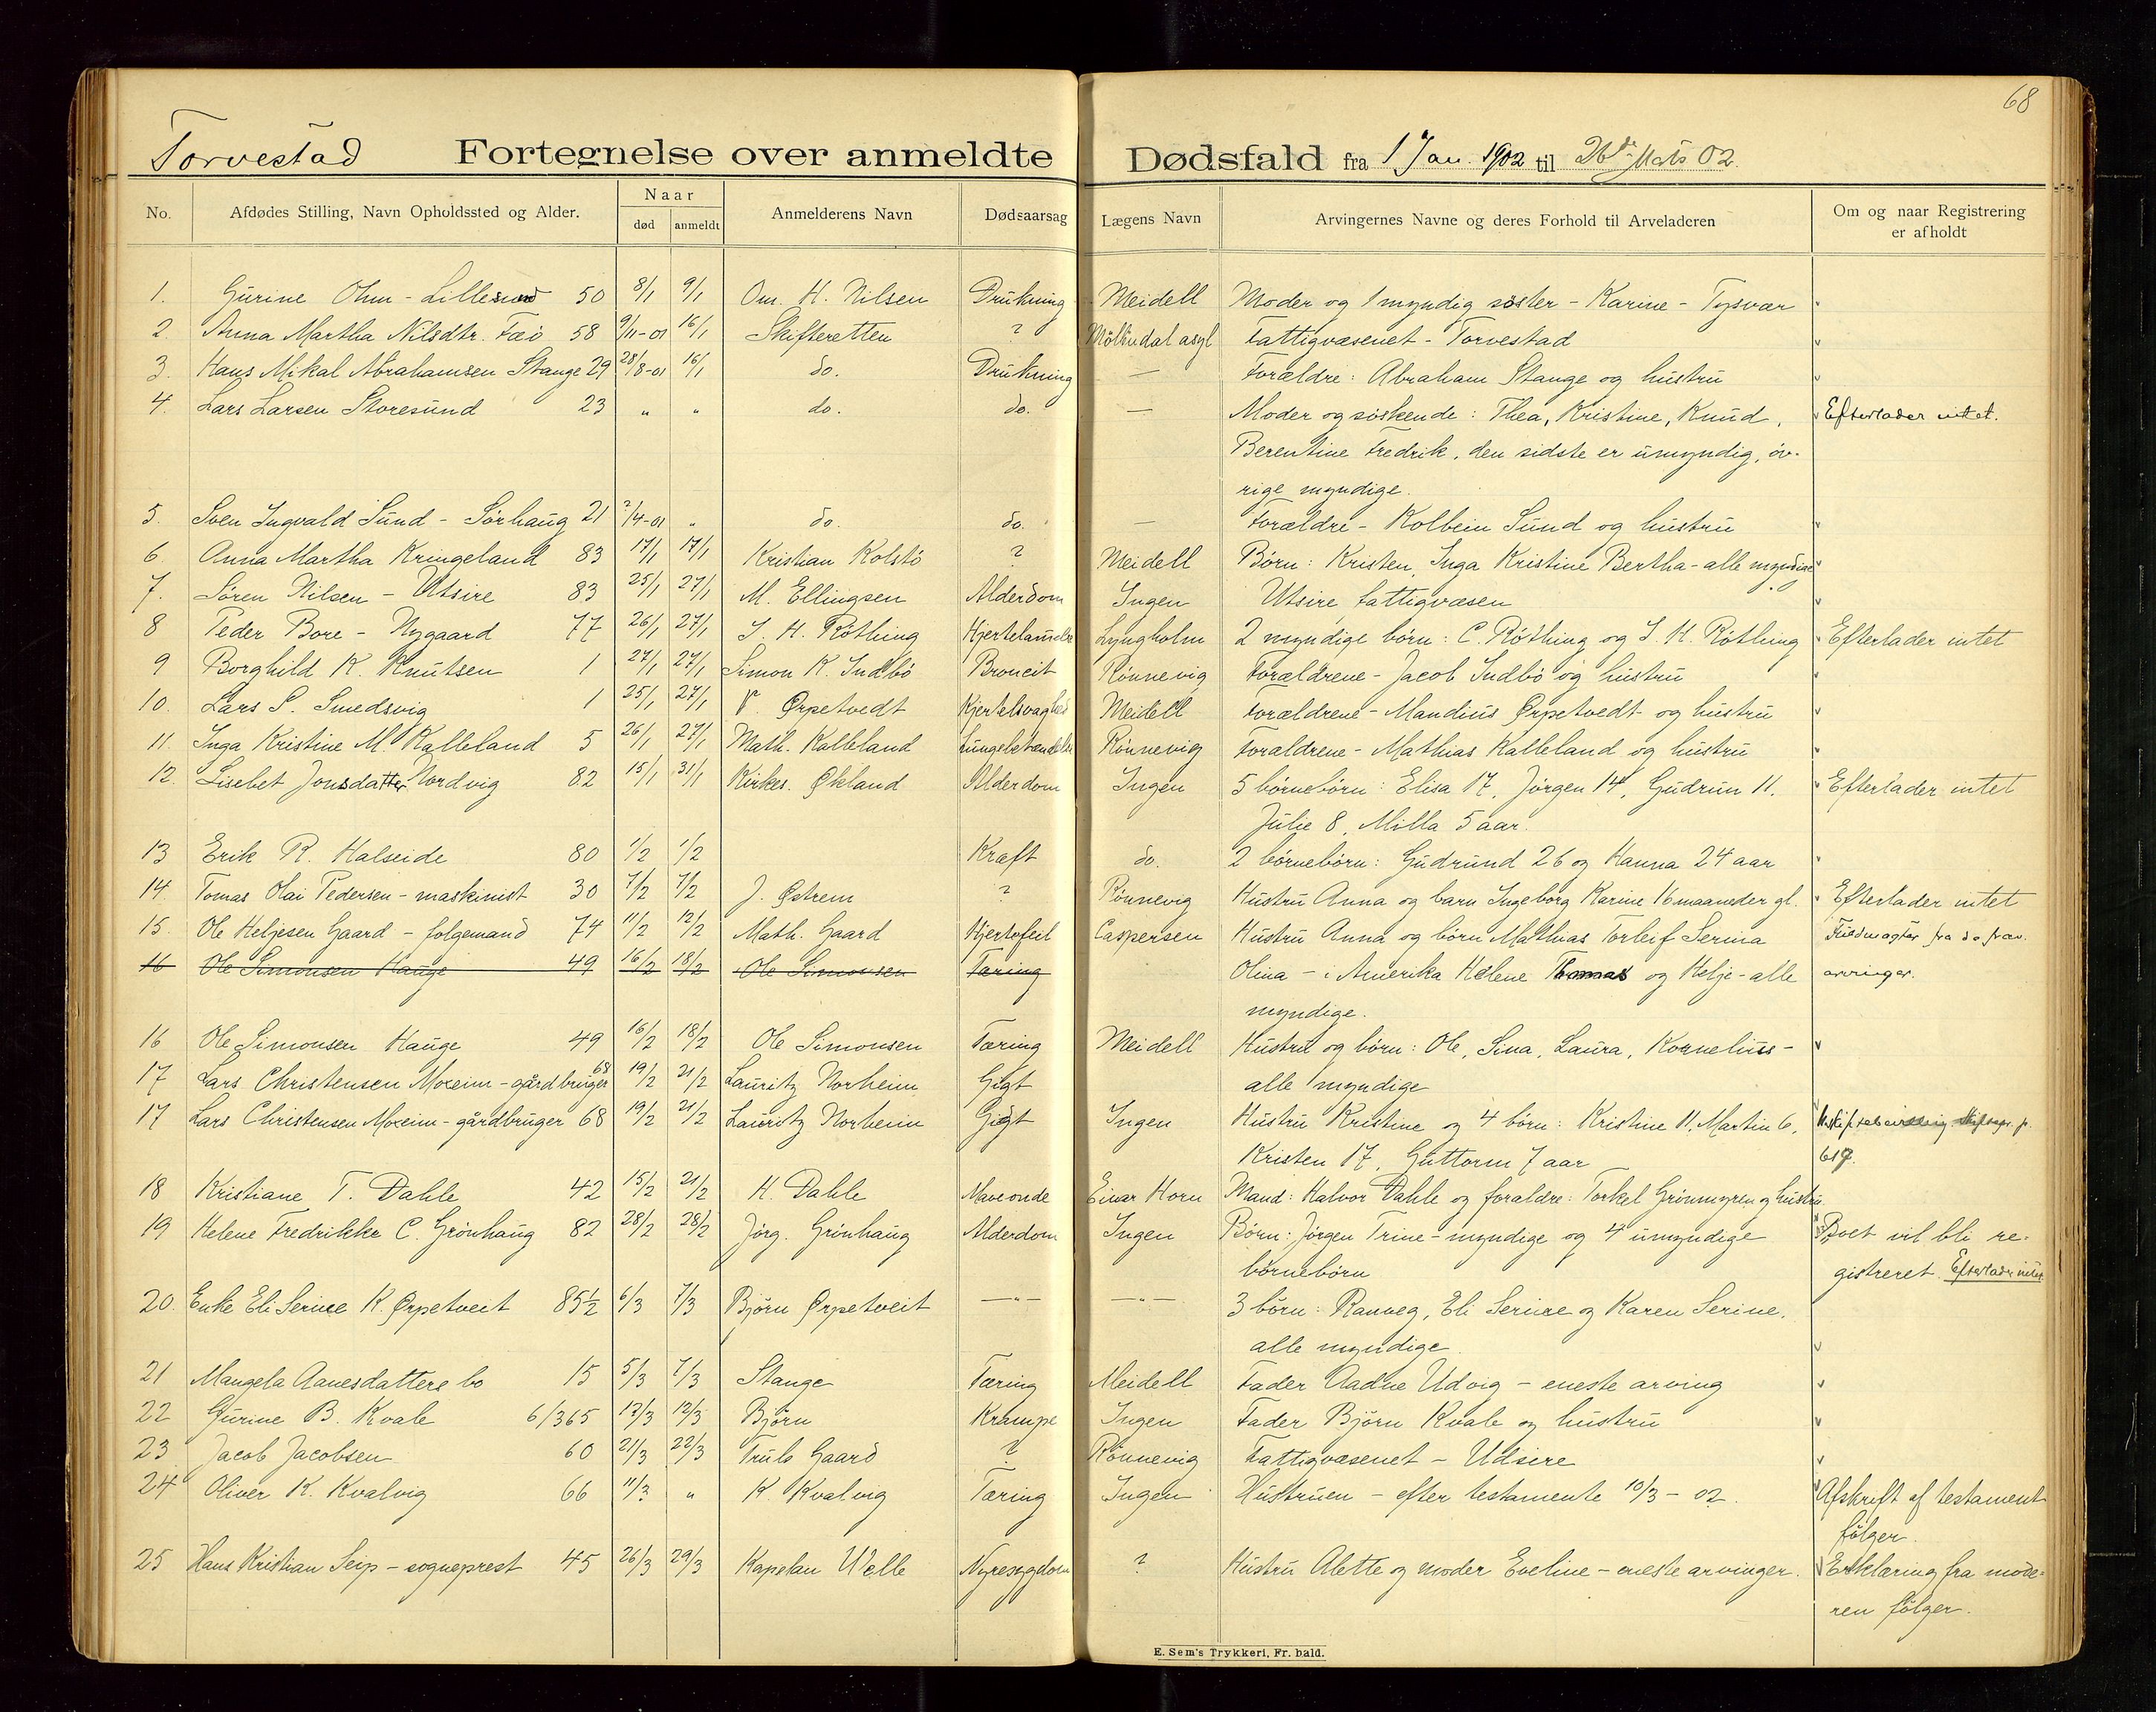 68
Torvestad Fortegnelse over anmeldte Dødsfald fra 1 Jan. 1902 til 26de Mats 02.
No. Afdødes Stilling, Navn Opholdssted og Alder. Naar død anmeldt Anmelderens Navn Dødsaarsag Lægens Navn Arvingernes Navne og deres Forhold til Arveladeren Om og naar Registrering er afholdt
1. Gurine Ohm - Lillesund 50 8/1 9/1 Om. H. Nilsen Drukning Meidell Moder og 1 myndig søster - Karine - Tysvær
2. Anna Martha Nilsdtr. Fæø 58 9/11-01 16/1 Skifteretten ? Möllendal asyl Fattigvæsenet - Torvestad
3. Hans Mikal Abrahamsen Stange 29 28/8-01 16/1 do. Drukning — Forældre: Abraham Stange og hustru
4. Lars Larsen Storesund 23 " " do. do. — Moder og søskende: Thea, Kristine, Knud, Efterlader intet.
Berentine Fredrik, den sidste er umyndig, øv-
rige myndige.
5. Sven Ingvald Sund - Sørhaug 21 ?/4-01 " do. do. — Forældre - Kolbein Sund og hustru
6. Anna Martha Kringeland 83 17/1 17/1 Kristian Kolstø ? Meidell Børn: Kristen, Inga Kristine Bertha - alle myndige
7. Søren Nilsen - Utsire 83 25/1 27/1 M. Ellingsen Alderdom Ingen Utsire Fattigvæsen
8 Peder Bore - Nygaard 77 26/1 27/1 J. H. Røthing Hjertelammelse Lyngholm 2 myndige børn: C. Røthing og J. H. Røthing Efterlader intet
9 Borghild K. Knutsen 1 27/1 27/1 Simon K. Indbø Broncit Rönnevig Forældrene - Jacob Indbø og hustru
10. Lars S. Smedsvig 1 25/1 27/1 V. Ørpetvedt Kjertelsvaghed Meidell Forældrene - Mandius Ørpetvedt og hustru
11. Inga Kristine M. Kalleland 5 26/1 27/1 Math. Kalleland Lungebetændelse Rönnevig Forældrene - Mathias Kalleland og hustru
12. Lisebet Jonsdatter Nordvig 82 15/1 31/1 Kirkes. Økland Alderdom Ingen 5 børnebørn: Elisa 17, Jørgen 14, Gudrun 11, Efterlader intet
Julie 8, Milla 5 aar.
13 Erik R. Halseide 80 1/2 1/2 Kræft do. 2 børnebørn: Gudrund 26 og Hanna 24 aar
14. Tomas Olai Pedersen - maskinist 30 7/2 7/2 J. Østrem ? Rönnevig Hustru Anna og barn Ingeborg Karine 16 maaneder gl. Efterlader intet
15. Ole Heljesen Gaard - folgemand 74 11/2 12/2 Math. Gaard Hjertefeil Caspersen Hustru Anna og børn Mathias Torleif Serina Fuldmagter fra de frav.
16 Ole Simonsen Hauge 49 16/2 18/2 Ole Simonsen Tæring Olina - i Amerika Helene Thomas og Helje - alle arvinger.
myndige.
16 Ole Simonsen Hauge 49 16/2 18/2 Ole Simonsen Tæring Meidell Hustru og børn: Ole, Sina, Laura, Kornelius -
17 Lars Christensen Moxeim - gårdbruger 68 19/2 21/2 Lauritz Norheim Gigt alle myndige
17 Lars Christensen Moxeim - gårdbruger 68 19/2 21/2 Lauritz Norheim Gigt Ingen Hustru Kristine og 4 børn: Kristine 11, Martin 6,
Kristen 17, Guttorm 7 aar 617.
18 Kristiane T. Dahle 42 15/2 21/2 H. Dahle Maveonde Einar Horn Mand: Halvor Dahle og forældre: Torkel Grönmyren og hustru
19 Helene Fredrikke C. Grönhaug 82 28/2 28/2 Jörg. Grönhaug Alderdom Ingen Børn: Jörgen Trine - myndige og 4 umyndige Boet vil bli re-
børnebørn gistreret. Efterlader intet
20. Enke Eli Serine K. Ørpetveit 85½ 6/3 7/3 Björn Ørpetveit —"— —"— 3 børn: Ranveg, Eli Serine og Karen Serine,
alle myndige.
21 Mangela Aanesdattere bo 15 5/3 7/3 Stange Tæring Meidell Fader Aadne Udvig - eneste arving
22 Gurine B. Kvale 6/365 12/3 12/3 Björn Krampe Ingen Fader Björn Kvale og hustru
23 Jacob Jacobsen 60 21/3 22/3 Truls Gaard ? Rönnevig Fattigvæsenet - Udsire
24 Oliver K. Kvalvig 66 11/3 " K. Kvalvig Tæring Ingen Hustruen - efter testamente 10/3 - 02. Afskrift af testament
følger.
25 Hans Kristian Seip - sogneprest 45 26/3 29/3 Kapelan Welle Nyresygdom ? Hustru Alette og moder Eveline - eneste arvinger. Erklæring fra mode-
ren følger.
E. Sem's Trykkeri, Fr. hald.